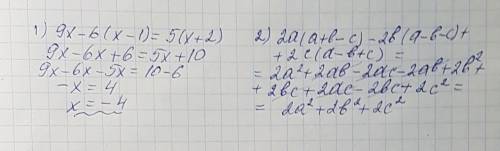 1) 9x-6(x-1)=5(x+2)
9x-6x+6=5x+10
9x-6x-5x=10-6
-x=4
x=-4
2) 2a(a+b-c)-2b(a-b-c)+
+2c(a-b+c)=
=2a²+2ab-2ac-2ab+2b²+
+2bc+2ac-2bc+2c²=
=2a²+2b²+2c²